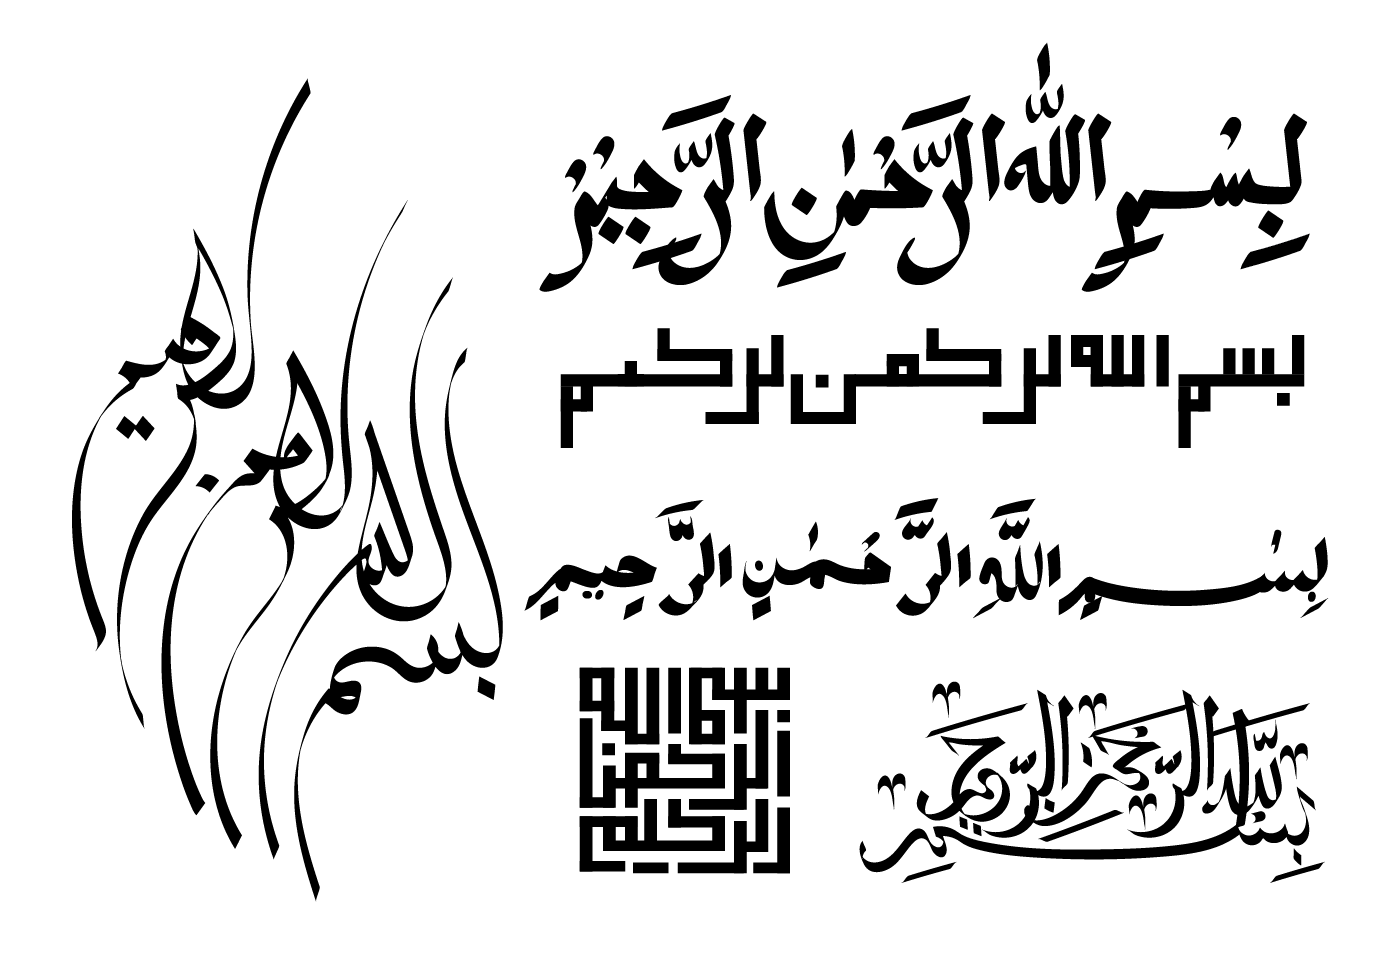 بِسْمِ اللّٰهِ الرَّحْمٰنِ الرَّحِيْمِ
بسم الله الرحمن الرحيم
بِسْمِ اللَّهِ الرَّحْمٰنِ الرَّحِيمِ
بسم الله الرحمن الرحيم
بِسْمِ اللّٰهِ الرَّحْمٰنِ الرَّحِيمِ
بسم الله الرحمن الرحيم